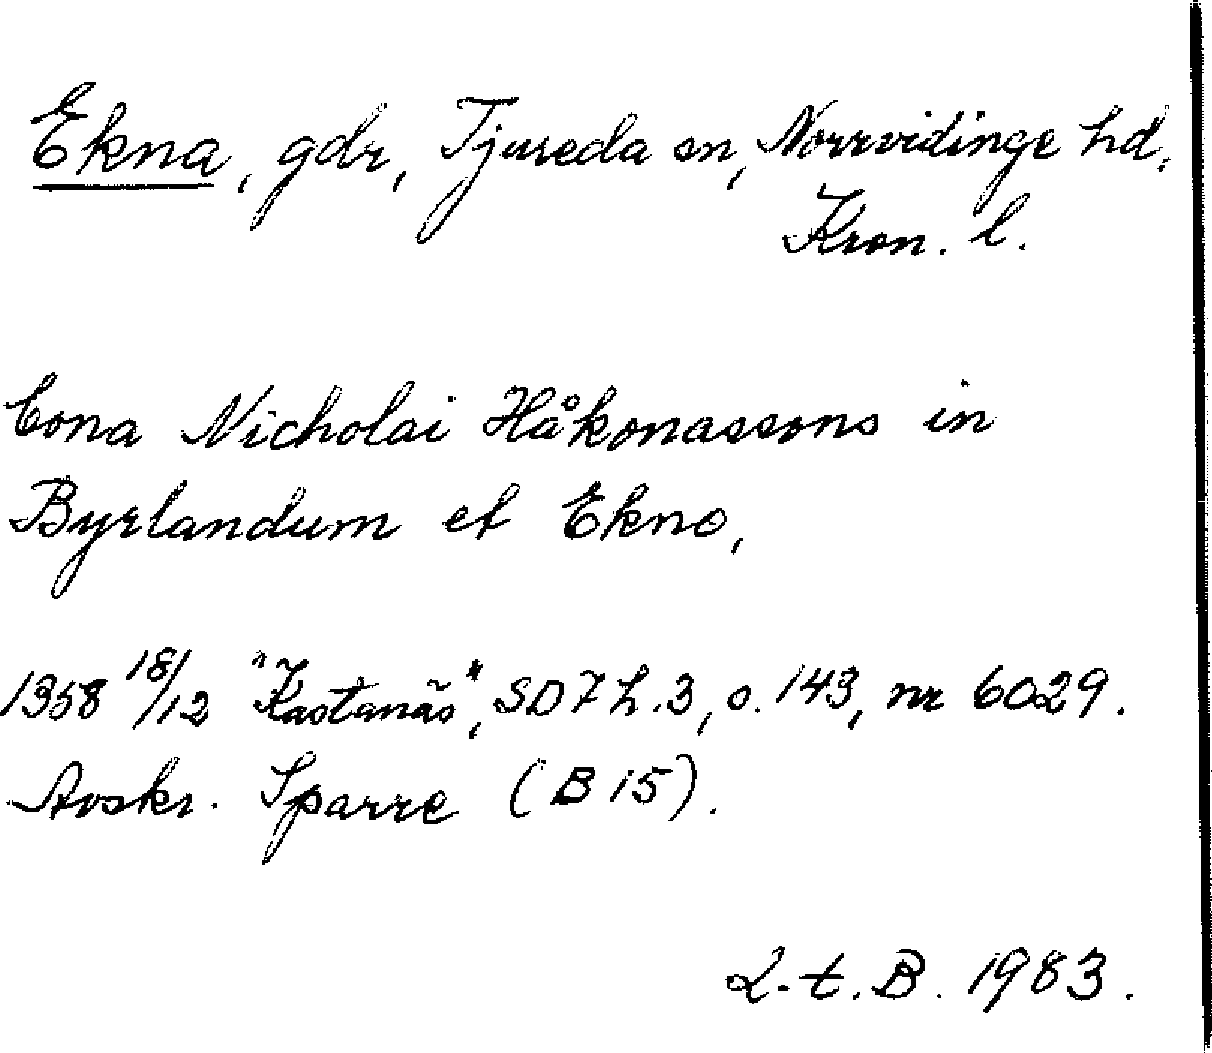 Ekna, gdr, Tjureda sn, Norrvidinge hd,
Kron. l.
bona Nicholai Håkonassons in
Byrlandum et Ekno,
1358 18/12 "Kastanäs", SD 7 h. 3, s. 143, nr 6029.
Avskr. Sparre (B 15).
L-t. B. 1983.